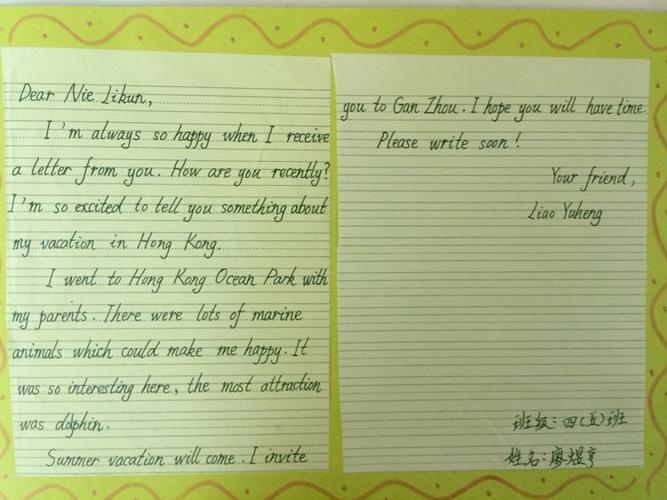 Dear Nie Likun,
I'm always so happy when I receive
a letter from you. How are you recently?
I'm so excited to tell you something about
my vacation in Hong Kong.
I went to Hong Kong Ocean Park with
my parents. There were lots of marine
animals which could make me happy. It
was so interesting here, the most attraction
was dolphin.
Summer vacation will come. I invite
you to Gan Zhou. I hope you will have time.
Please write soon!
Your friend,
Liao Yuheng
班级:四(五)班
姓名:廖煜亨